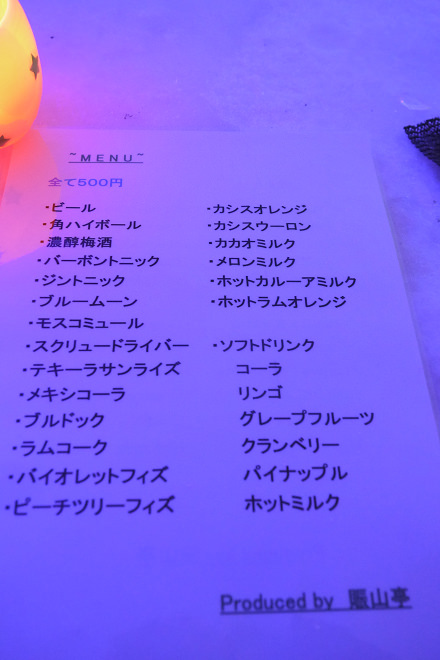 ~MENU~
全て500円
・ビール
・角ハイボール
・濃醇梅酒
・バーボントニック
・ジントニック
・ブルームーン
・モスコミュール
・スクリュードライバー
・テキーラサンライズ
・メキシコーラ
・ブルドック
・ラムコーク
・バイオレットフィズ
・ピーチツリーフィズ
・カシスオレンジ
・カシスウーロン
・カカオミルク
・メロンミルク
・ホットカルーアミルク
・ホットラムオレンジ
・ソフトドリンク
コーラ
リンゴ
グレープフルーツ
クランベリー
パイナップル
ホットミルク
Produced by 賑山亭